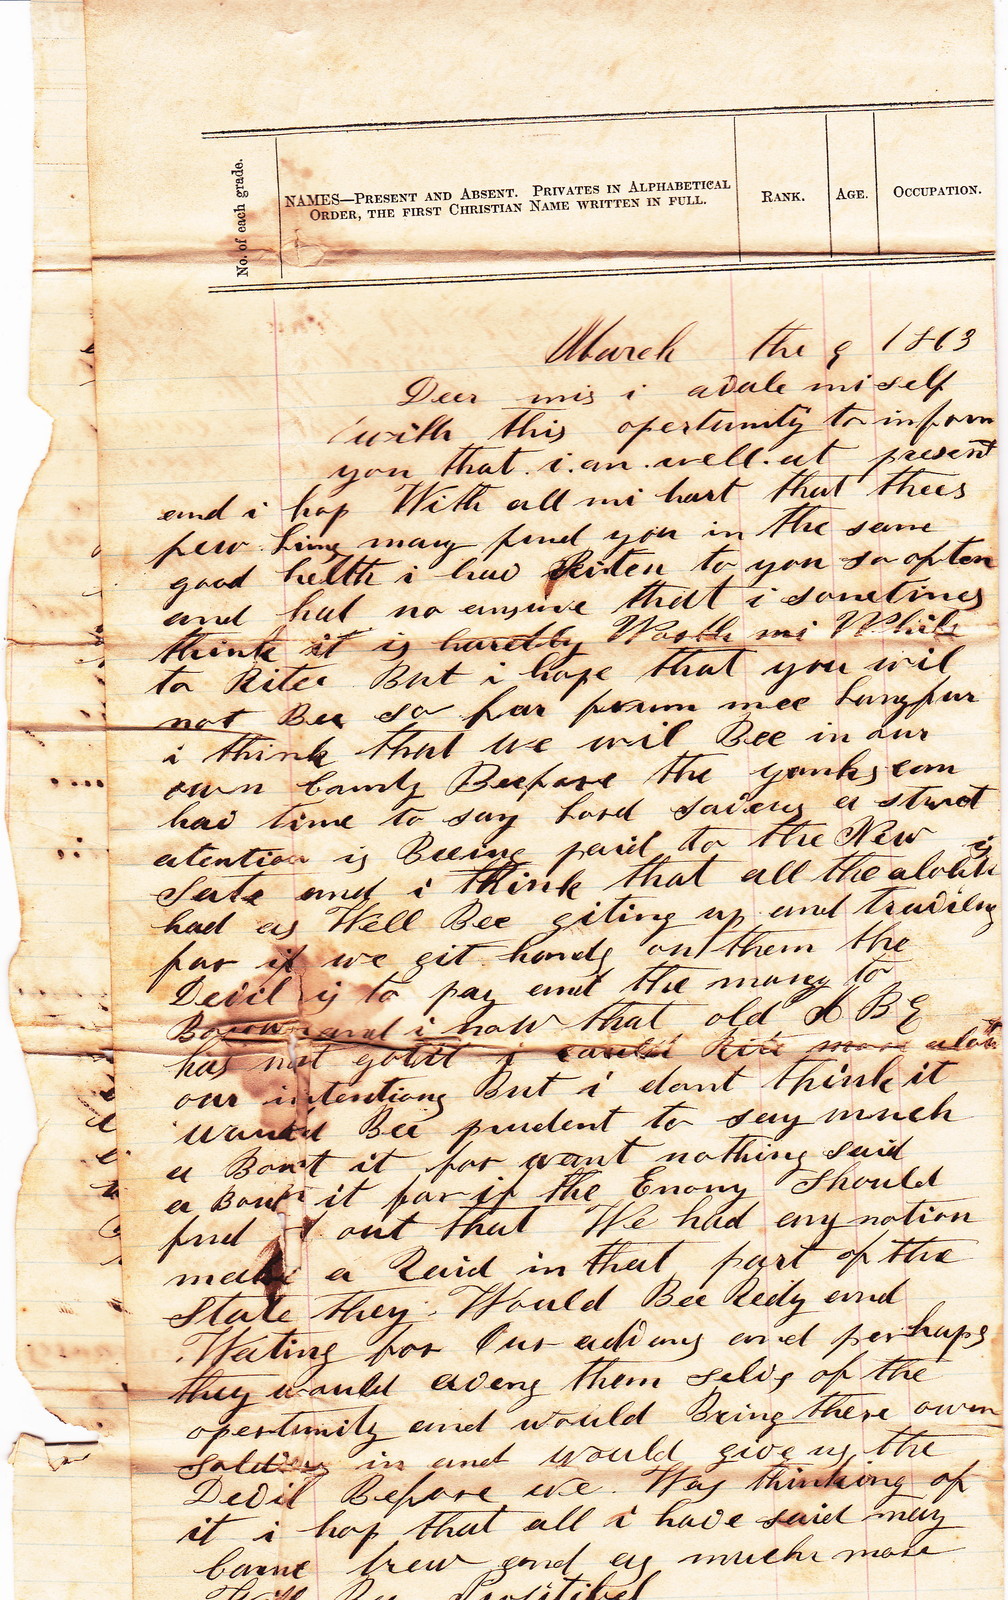 No. of each grade.
NAMES—Present and Absent. Privates in Alphabetical
Order, the first Christian Name written in full.
Rank.
Age.
Occupation.
March the 9 1863
Deer mis i avale mi self
with this opertunity to inform
you that i am well at present
and i hop With all mi hart that thees
few lines may find you in the same
good helth i hav Riten to you so often
and hat no ansure that i sometimes
think it is haredly Worth mi While
to Rite But i hope that you wil
not Bee so far from mee long for
i think that we wil Bee in our
own County Beefore the yanks can
hav time to say Lord a strict
atention is Beeing paid to the New is
Sate and i think that all the
had as Well Bee giting up and traviling
for if we git hands on them the
Devil is to pay and the mony to
Borow and i now that old A B E
has not gotit i could Rite more
our intentions But i dont think it
Would Bee prudent to say much
a Bout it for want nothing said
a Bout it for if the Enomy Should
find it out that We had any notion
make a Raid in that part of the
State they Would Bee Redy and
Wating for Our and perhaps
they would them selvs of the
opertunity and would Bring there own
soldiers in and would give us the
Devil Before we Was thinking of
it i hop that all i have said may
Come trew and as much more
Will Be Positive